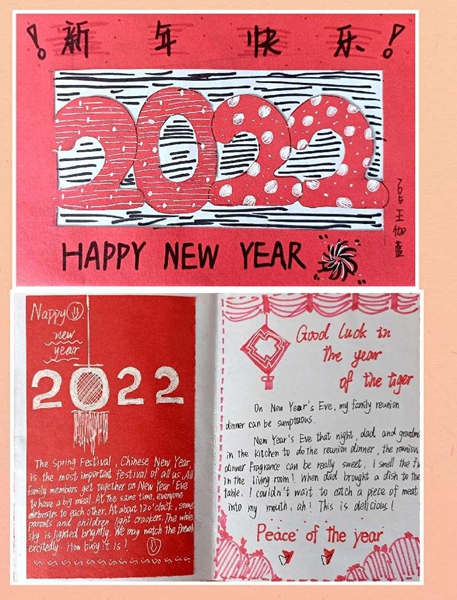 ！新年快乐！
2022
HAPPY NEW YEAR
Happy
new
year
2022
The Spring Festival, Chinese New Year,
is the most important festival of all us. All
family members get together on New Year' Eve
to have a big meal. At the same time, everyone
celebrates to each other. At about 12 o'clock, some
parents and children light crackers. The whole
sky is lighted brightly. We may watch the
excitedly. How busy it is!
Good Luck in
the year
of the tiger
On New Year's Eve, my family reunion
dinner can be sumptuous.
New Year's Eve that night, dad and grandma
in the kitchen to do the reunion dinner, the reunion
dinner fragrance can be really sweet, I smell the
in the living room! When dad brought a dish to the
table. I couldn't wait to catch a piece of meat
into my mouth, ah! This is delicious!
Peace of the year